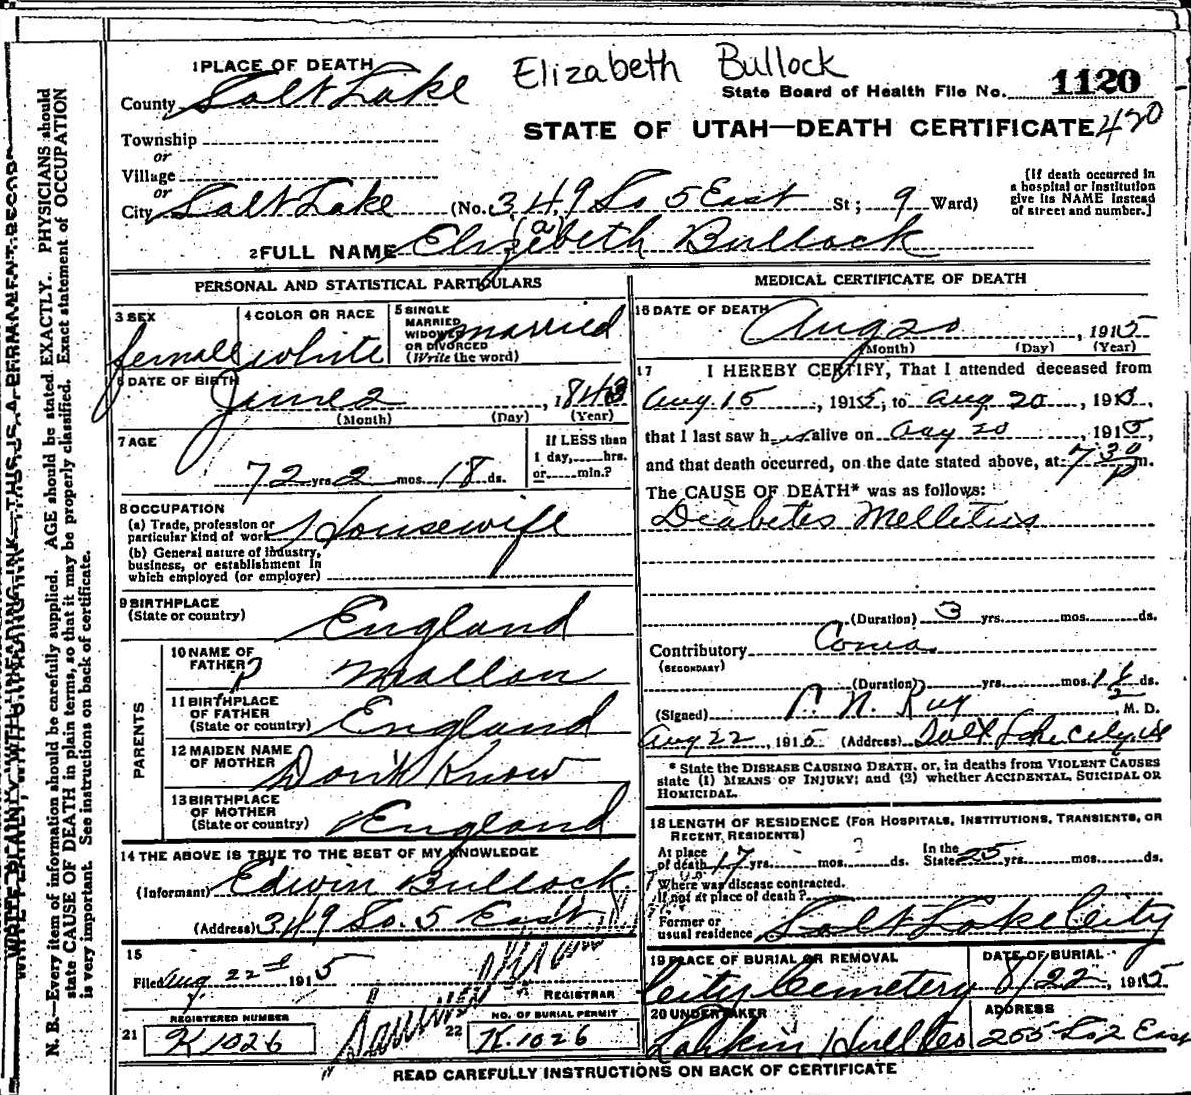 Elizabeth Bullock
1 PLACE OF DEATH
State Board of Health File No. 1120
County Salt Lake
STATE OF UTAH—DEATH CERTIFICATE 420
Township
or
Village
or
City Salt Lake (No. 349 So 5 East St; 9 Ward)
[If death occurred in
a hospital or institution
give its NAME instead
of street and number.]
2 FULL NAME Elizabeth Bullock
(a)
PERSONAL AND STATISTICAL PARTICULARS
3 SEX
female
4 COLOR OR RACE
white
5 SINGLE
MARRIED
WIDOWED
OR DIVORCED
(Write the word)
married
6 DATE OF BIRTH
June 2, 1843
(Month) (Day) (Year)
7 AGE
72 yrs 2 mos. 18 ds.
If LESS than
1 day, hrs.
or min.?
8 OCCUPATION
(a) Trade, profession or
particular kind of work Housewife
(b) General nature of industry,
business, or establishment in
which employed (or employer)
9 BIRTHPLACE
(State or country) England
PARENTS
10 NAME OF
FATHER Mallon
11 BIRTHPLACE
OF FATHER
(State or country) England
12 MAIDEN NAME
OF MOTHER Don't Know
13 BIRTHPLACE
OF MOTHER
(State or country) England
14 THE ABOVE IS TRUE TO THE BEST OF MY KNOWLEDGE
(Informant) Edwin Bullock
(Address) 349 So. 5 East
15
Filed Aug 22nd 1915
REGISTRAR
21 REGISTERED NUMBER
K 1026
22 NO. OF BURIAL PERMIT
K. 1026
MEDICAL CERTIFICATE OF DEATH
16 DATE OF DEATH
Aug 20, 1915
(Month) (Day) (Year)
17 I HEREBY CERTIFY, That I attended deceased from
Aug. 15, 1915, to Aug 20, 1915,
that I last saw h is alive on Aug 20, 1915,
and that death occurred, on the date stated above, at 7 30 p m.
The CAUSE OF DEATH* was as follows:
Diabetes Mellitus
(Duration) 3 yrs. mos. ds.
Contributory Coma
(SECONDARY)
(Duration) yrs. mos. 1 1/2 ds.
(Signed) M. D.
Aug 22, 1915 (Address) Salt Lake City
* State the DISEASE CAUSING DEATH, or, in deaths from VIOLENT CAUSES
state (1) MEANS OF INJURY; and (2) whether ACCIDENTAL, SUICIDAL OR
HOMICIDAL.
18 LENGTH OF RESIDENCE (FOR HOSPITALS, INSTITUTIONS, TRANSIENTS, OR
RECENT RESIDENTS)
At place
of death 17 yrs. mos. ? ds.
In the
State 25 yrs. mos. ds.
Where was disease contracted.
If not at place of death?
Former or
usual residence Salt Lake City
19 PLACE OF BURIAL OR REMOVAL
City Cemetery
DATE OF BURIAL
8/22, 1915
20 UNDERTAKER
Larkin Hull Co
ADDRESS
255 So 2 East
READ CAREFULLY INSTRUCTIONS ON BACK OF CERTIFICATE
N. B.—Every item of information should be carefully supplied. AGE should be stated EXACTLY. PHYSICIANS should
state CAUSE OF DEATH in plain terms, so that it may be properly classified. Exact statement of OCCUPATION
is very important. See instructions on back of certificate.